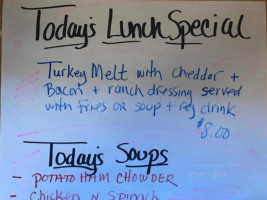 Today's Lunch Special
Turkey Melt with cheddar +
Bacon + ranch dressing served
with fries or soup + reg drink
$8.00
Today's Soups
- POTATO HAM CHOWDER
- Chicken n Spinach